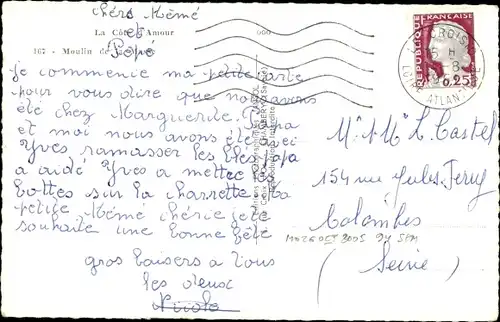 chers Mémé
et
Pépé
La Côte d'Amour
167 - Moulin de
000
je commence ma petite carte
pour vous dire que nous avons
été chez Marguerite. Papa
et moi nous avons été
Yves ramasser les blés papa
a aidé Yves a mettre les
bottes sur la charrette. Ma
petite Mémé chérie je te
souhaite une bonne fête
gros baisers a tous
les deux
Nicole
REPUBLIQUE
FRANÇAISE
0,25
CROISIC
H
8
ATLANT
M. et Mme L. Castel
154 rue Jules Ferry
Colombes
(Seine)